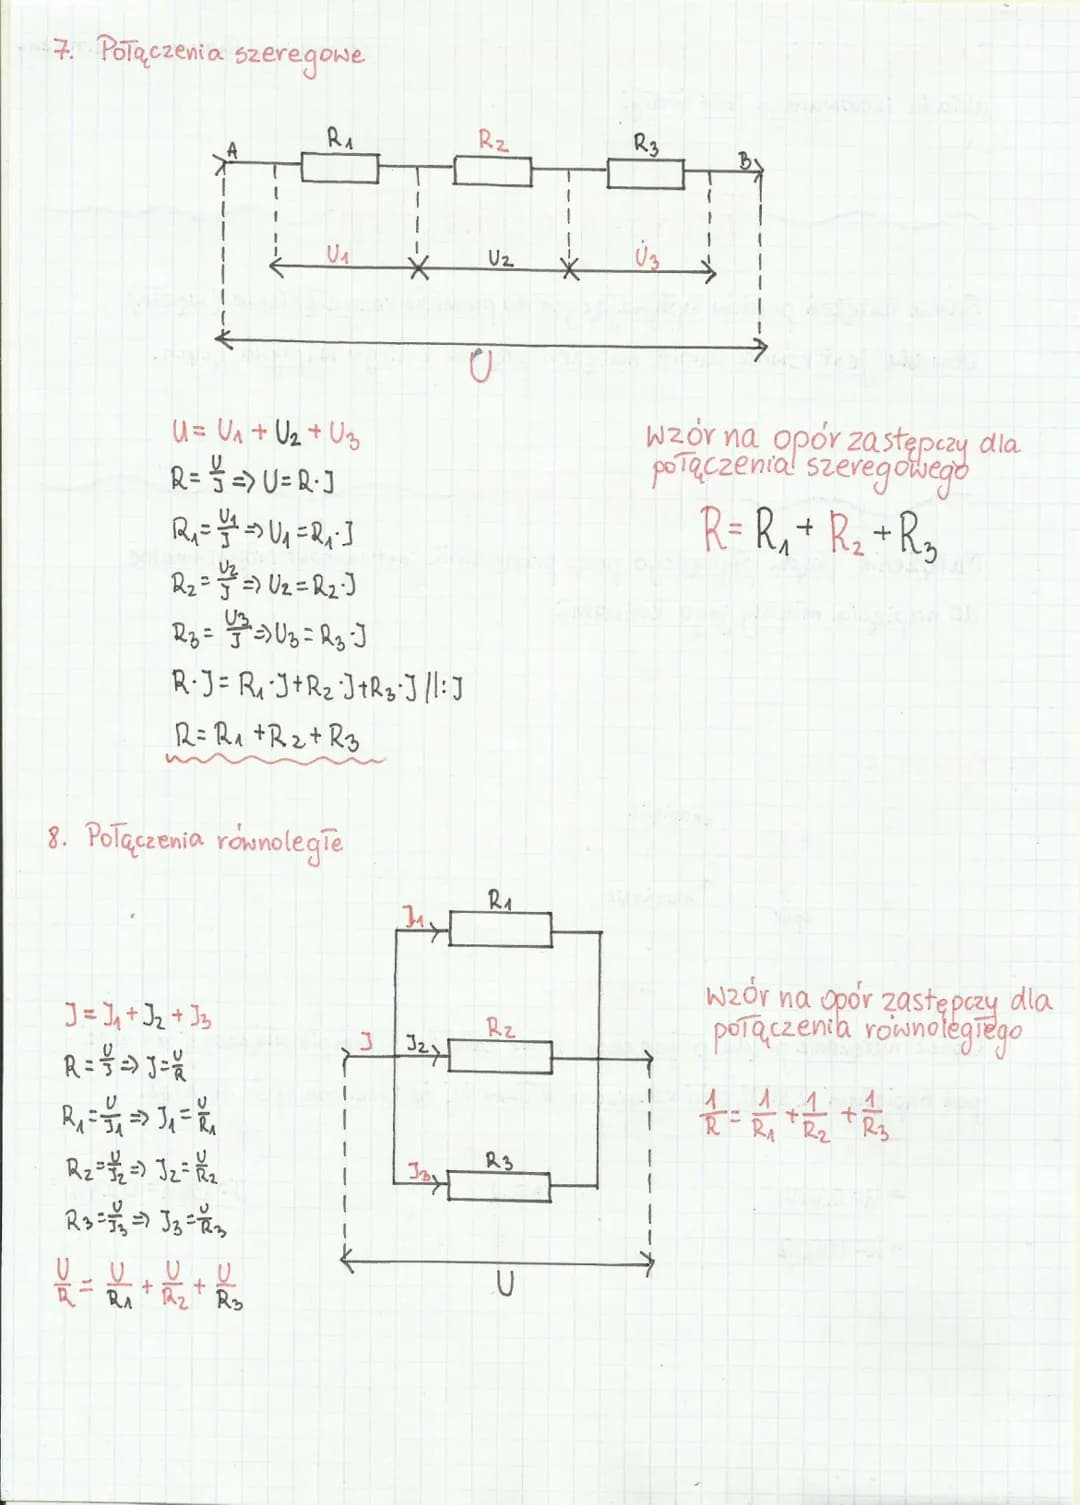 7. Połączenia szeregowe
A R1 R2 R3 B
U1 U2 U3
U
U = U1 + U2 + U3
R = U/J => U = R·J
R1 = U1/J => U1 = R1·J
R2 = U2/J => U2 = R2·J
R3 = U3/J => U3 = R3·J
R·J = R1·J + R2·J + R3·J //:J
R = R1 + R2 + R3
Wzór na opór zastępczy dla
połączenia szeregowego
R = R1 + R2 + R3
8. Połączenia równoległe
J1 R1
J J2 R2
J3 R3
U
J = J1 + J2 + J3
R = U/J => J = U/R
R1 = U/J1 => J1 = U/R1
R2 = U/J2 => J2 = U/R2
R3 = U/J3 => J3 = U/R3
U/R = U/R1 + U/R2 + U/R3
Wzór na opór zastępczy dla
połączenia równoległego
1/R = 1/R1 + 1/R2 + 1/R3